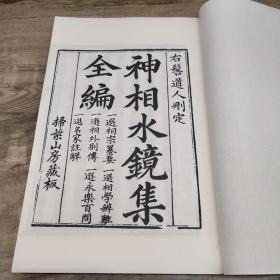 右髻道人刪定
神相水鏡集
全編
一選相宗纂要 一選相學辨難
一選相外別傳 一選永樂百問
一選名家註解
掃葉山房藏板